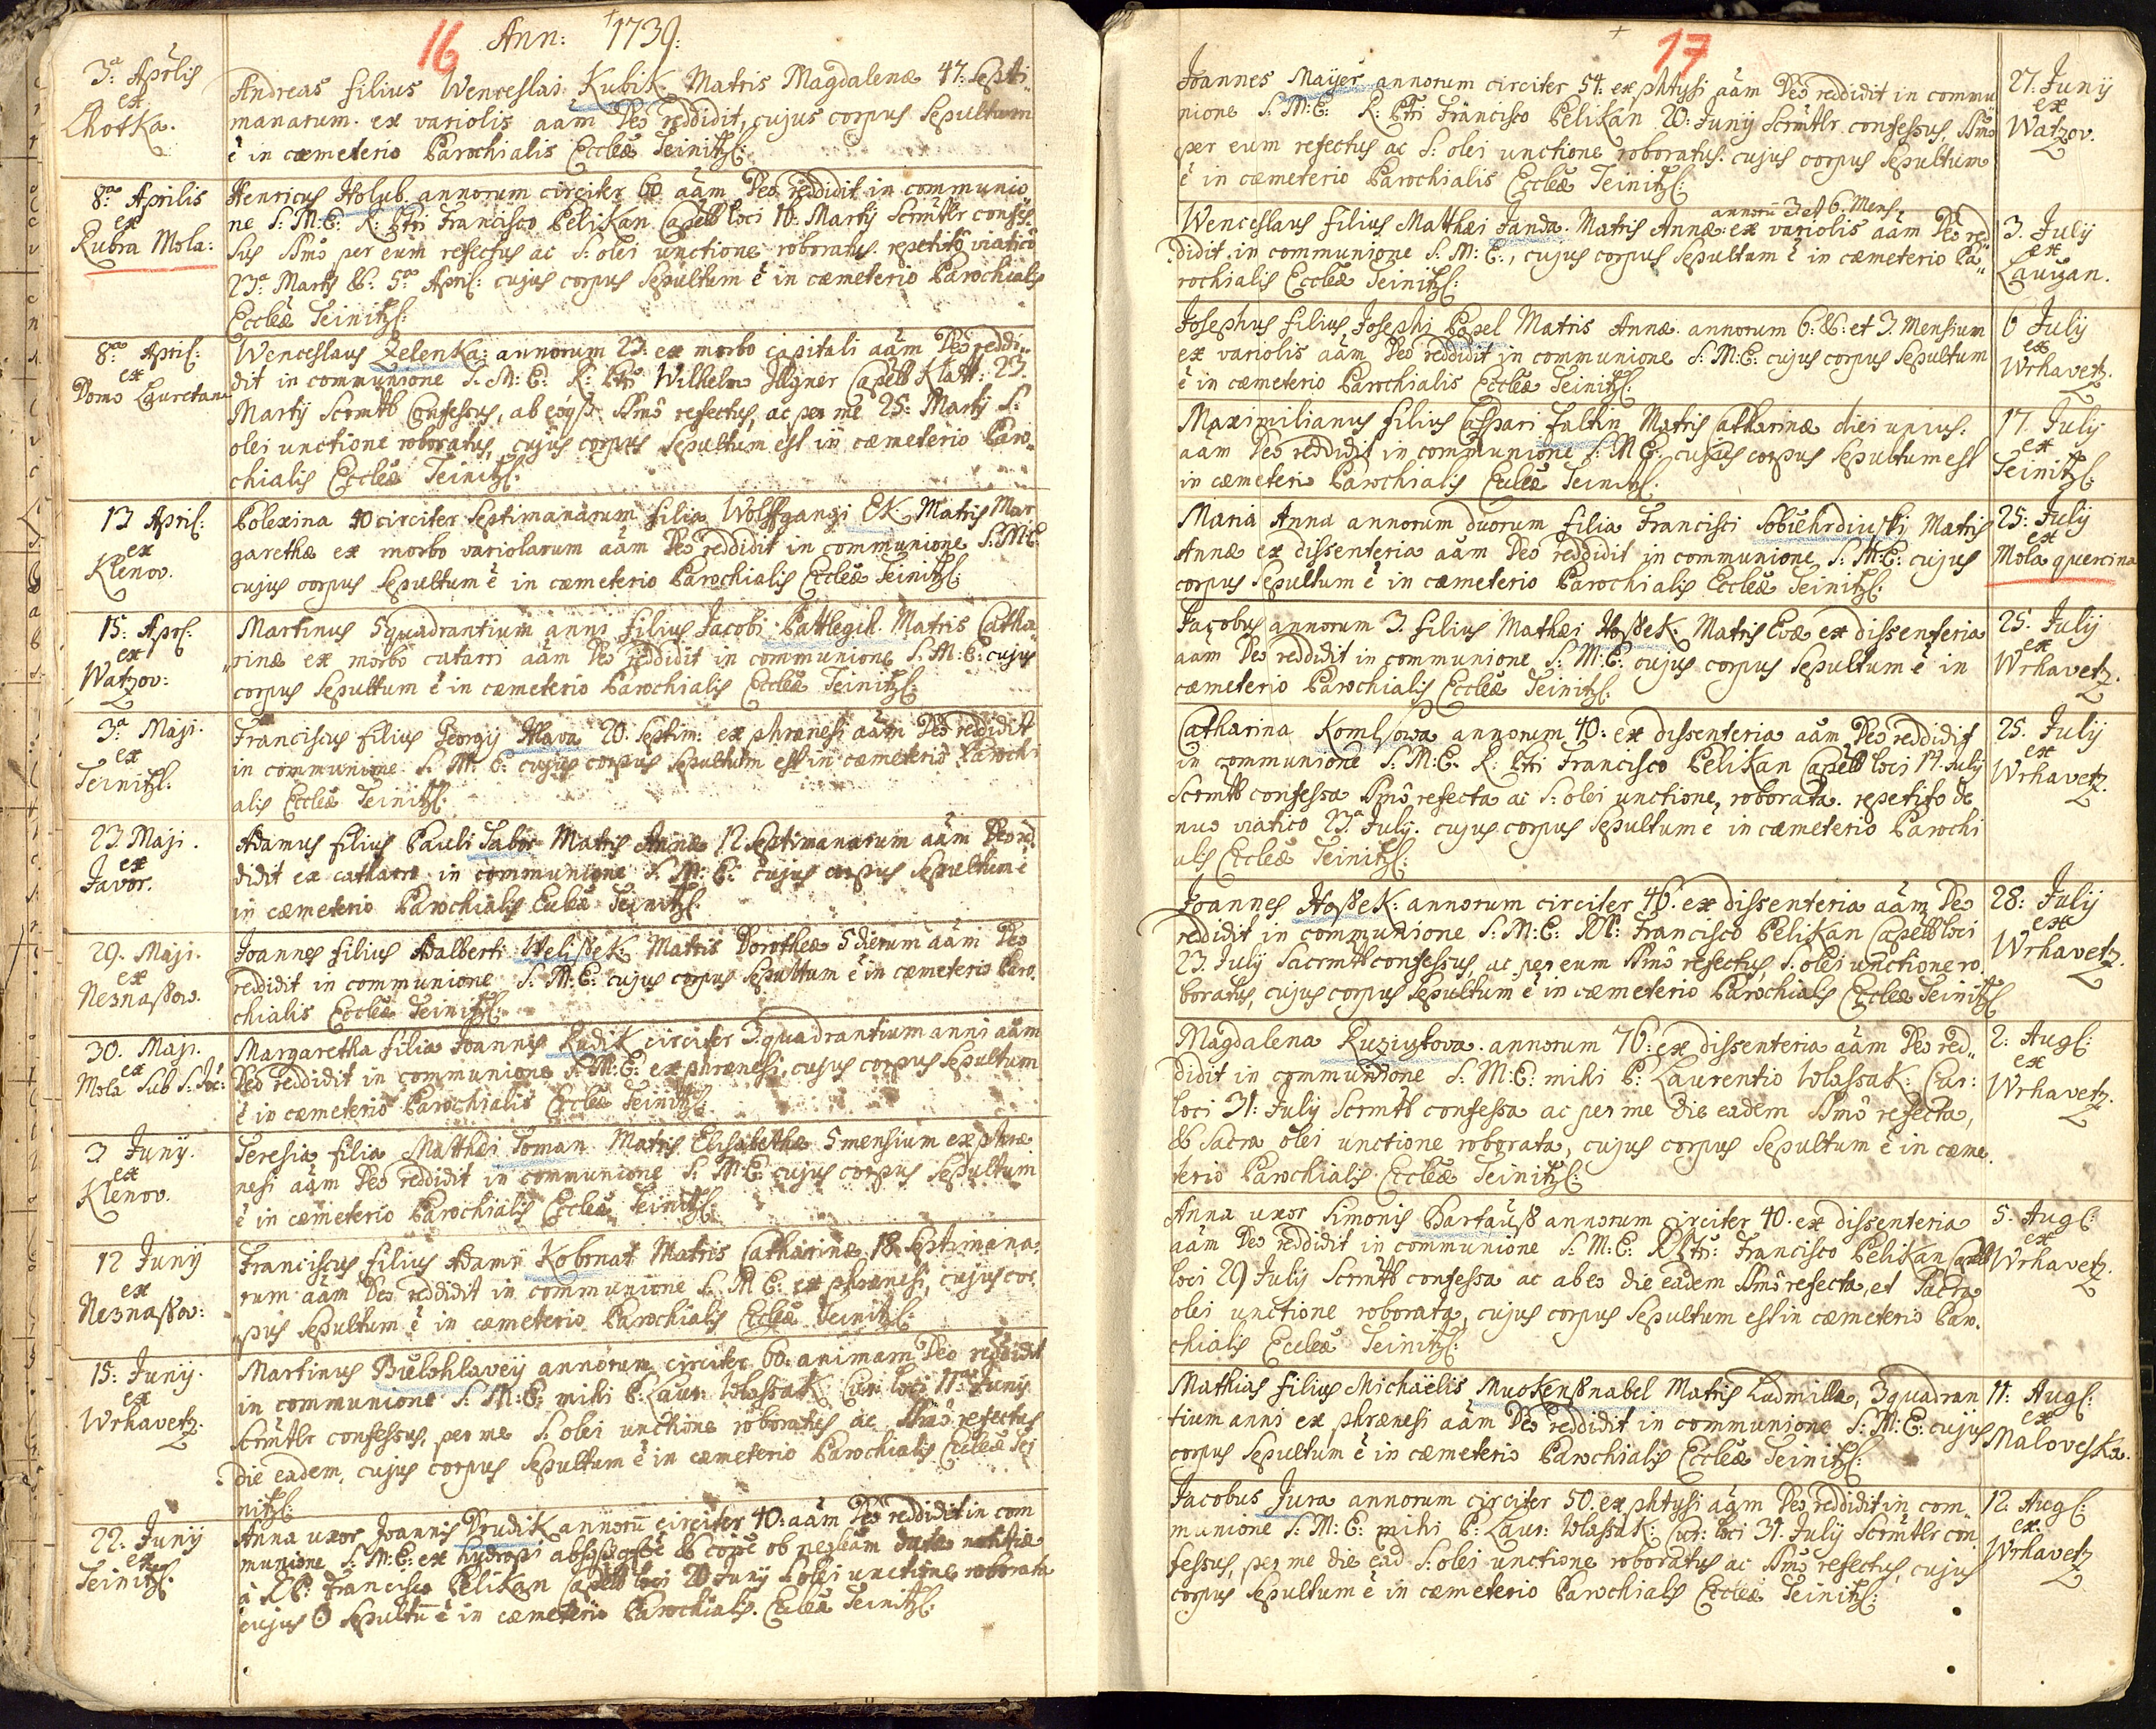 16 Ann: 1739.
3ª Aprilis
ex
Lhotka.
Andreas filius Wenceslai Kubik Matris Magdalenæ 47: Septi
manarum. ex variolis aam Deo reddidit, cujus corpus Sepultum
ē in cæmeterio Parochialis Eccleæ Teinitzl:
8ª Aprilis
ex
Rubra Mola:
Henricus Holub annorum circiter 60 aam Deo reddidit in communio
ne S: M: E: R: Ptri Francisco Pelikan Capell loci 16: Martij Scrmtlr confes
sus Ssmo per eum refectus ac S: olei unctione roboratus. repetito viatico
23ª Martij & 5ª April: cujus corpus Sepultum ē in cæmeterio Parochialis
Eccleæ Teinitzl:
8ª April:
ex
Domo Lauretana
Wenceslaus Zelenka: annorum 23. ex morbo capitali aam Deo reddi
dit in communione S: M: E: R: Ptri Wilhelm Illgner Capell Klatt: 23.
Martij Scrmtl Confessus, ab eoq3 Ssmo refectus, ac per me 25: Martij S:
olei unctione roboratus, cujus corpus Sepultum est in cæmeterio Paro
chialis Eccleæ Teinitzl:
13 April:
ex
Klenov.
Polexina 40 circiter Septimanarum filia Wolffgangi Ek. Matris Mar
garethæ ex morbo variolarum aam Deo reddidit in communione S: M: E:
cujus corpus Sepultum ē in cæmeterio Parochialis Eccleæ Teinitzl:
15: Aprl:
ex
Watzov:
Martinus 5 quadrantium anni filius Jacobi Pattlegik. Matris Catha
rinæ ex morbo catarri aam Deo reddidit in communione S: M: E: cujus
corpus Sepultum ē in cæmeterio Parochialis Eccleæ Teinitzl:
3ª Maji.
ex
Teinitzl:
Franciscus filius Georgij Hlava 20. Septim: ex phrænesi aam Deo reddidit
in communione S: M: E: cujus corpus Sepultum est in cæmeterio Parochi
alis Eccleæ Teinitzl:
23. Maji.
ex
Javor.
Adamus filius Pauli Tabor Matris Annæ 12 Septimanarum aam Deo red
didit ex catharro in communione S: M: E: cujus corpus Sepultum ē
in cæmeterio Parochialis Eccleæ Teinitzl:
29. Maji.
ex
Neznaßow.
Joannes filius Adalberti Welißek Matris Dorotheæ 5 dierum aam Deo
reddidit in communione S: M: E: cujus corpus Sepultum ē in cæmeterio Paro
chialis Eccleæ Teinitzl:
30. Maji.
ex
Mola Sub S:
Margaretha filia Joannis Rudik circiter 3 quadrantium anni aam
Deo reddidit in communione S: M: E: ex phrænesi, cujus corpus Sepultum
ē in cæmeterio Parochialis Eccleæ Teinitzl:
3 Junij.
ex
Klenov.
Teresia filia Matthæi Toman Matris Elisabethæ 5 mensium ex phræ
nesi aam Deo reddidit in communione S: M: E: cujus corpus Sepultum
ē in cæmeterio Parochialis Eccleæ Teinitzl:
12 Junij
ex
Neznaßov:
Franciscus filius Adami Kobrnat Matris Catharinæ 18 Septimana
rum aam Deo reddidit in communione S: M: E: ex phrænesi, cujus cor
pus Sepultum ē in cæmeterio Parochialis Eccleæ Teinitzl:
15: Junij.
ex
Wrhavetz.
Martinus Bielohlavey annorum circiter 60. animam Deo reddidit
in communione S: M: E: mihi P: Laur: Wlassak Cur: loci 11ª Junij
Scrmtlr confessus, per me S: olei unctione roboratus ac Ssmo refectus
die eadem, cujus corpus Sepultum ē in cæmeterio Parochialis Eccleæ Tei
nitzl:
22. Junij
ex
Teinitzl:
Anna uxor Joannis Drudik annorū circiter 40: aam Deo reddidit in com
munione S: M: E: ex hydropi ob neglãm
à R P: Francisco Pelikan Capell loci 20 Junij S olei unctione roborata
cujus Sepultū ē in cæmeterio Parochialis Eccleæ Teinitzl:
17
Joannes Mayer annorum circiter 54. ex phtysi aam Deo reddidit in commu
nione S: M: E: R: Ptri Francisco Pelikan 20: Junij Scrmtlr confessus, Ssmo
per eum refectus ac S: olei unctione roboratus: cujus corpus Sepultum
ē in cæmeterio Parochialis Eccleæ Teinitzl:
27. Junij
ex
Watzov.
annorū 3 et 6. Mens
Wenceslaus filius Matthæi Janda Matris Annæ ex variolis aam Deo red
didit in communione S: M: E:, cujus corpus Sepultum ē in cæmeterio Pa
rochialis Eccleæ Teinitzl:
3. July
ex
Lauzan.
Josephus filius Josephi Papel Matris Annæ. annorum 6: &: et 3. Mensium
ex variolis aam Deo reddidit in communione S: M: E: cujus corpus Sepultum
ē in cæmeterio Parochialis Eccleæ Teinitzl:
6 July
ex
Wrhavetz.
Maximilianus filius Caspari Faltin Matris Catharinæ diei unius.
aam Deo reddidit in communione S: M E: cujus corpus Sepultum est
in cæmeterio Parochialis Eccleæ Teinitzl:
17. July
ex
Teinitzl:
Maria Anna annorum duorum filia Francisci Sobiehrdiuski Matris
Annæ ex dissenteria aam Deo reddidit in communione S: M: E: cujus
corpus Sepultum ē in cæmeterio Parochialis Eccleæ Teinitzl:
25: July
ex
Mola quercina
Jacobus annorum 3. filius Mathæi Hoßek. Matris Evæ ex dissenteria
aam Deo reddidit in communione S: M: E: cujus corpus Sepultum ē in
cæmeterio Parochialis Eccleæ Teinitzl:
25. July
ex
Wrhavetz.
Catharina Komlsowa annorum 40: ex dissenteria aam Deo reddidit
in communione S: M: E: R: Ptri Francisco Pelikan Capell loci 17. July
Scrmtl confessa Ssmo refecta ac S: olei unctione, roborata. repetito de
nuo viatico 23ª July. cujus corpus Sepultum ē in cæmeterio Parochi
alis Eccleæ Teinitzl:
25. July
ex
Wrhavetz.
Joannes Hoßek: annorum circiter 46. ex dissenteria aam Deo
reddidit in communione S: M: E: RP: Francisco Pelikan Capell loci
23. July Sacrmtl confessus, ac per eum Ssmo refectus, S: olei unctione ro
boratus, cujus corpus Sepultum ē in cæmeterio Parochialis Eccleæ Teinitzl
28: July
ex
Wrhavetz.
Magdalena Ruziuzkova. annorum 76: ex dissenteria aam Deo red
didit in communione S: M: E: mihi P: Laurentio Wlassak: Cur:
loci 31: July Scrmtl confessa ac per me die eadem Ssmo refecta,
& Sacra olei unctione roborata, cujus corpus Sepultum ē in cæme
terio Parochialis Eccleæ Teinitzl:
2: Augl:
ex
Wrhavetz.
Anna uxor Simonis Bartauß annorum circiter 40. ex dissenteria
aam Deo reddidit in communione S: M: E: R Ptri: Francisco Pelikan Capell
loci 29 July Scrmtl confessa ac ab eo die eadem Ssmo refecta, et Sacra
olei unctione roborata, cujus corpus Sepultum est in cæmeterio Paro
chialis Eccleæ Teinitzl:
5. Augl:
ex
Wrhavetz.
Mathias filius Michaëlis Muckenßnabel Matris Ludmilla, 3 quadran
tium anni ex phrænesi aam Deo reddidit in communione S: M: E: cujus
corpus Sepultum ē in cæmeterio Parochialis Eccleæ Teinitzl:
11: Augl:
ex
Maloveska.
Jacobus Jura annorum circiter 50. ex phtysi aam Deo reddidit in com
munione S: M: E: mihi P: Laur: Wlassak: Cur: loci 31. July Scrmtlr con
fessus, per me die ead S: olei unctione roboratus ac Ssmo refectus, cujus
corpus Sepultum ē in cæmeterio Parochialis Eccleæ Teinitzl:
12. Augl:
ex
Wrhavetz